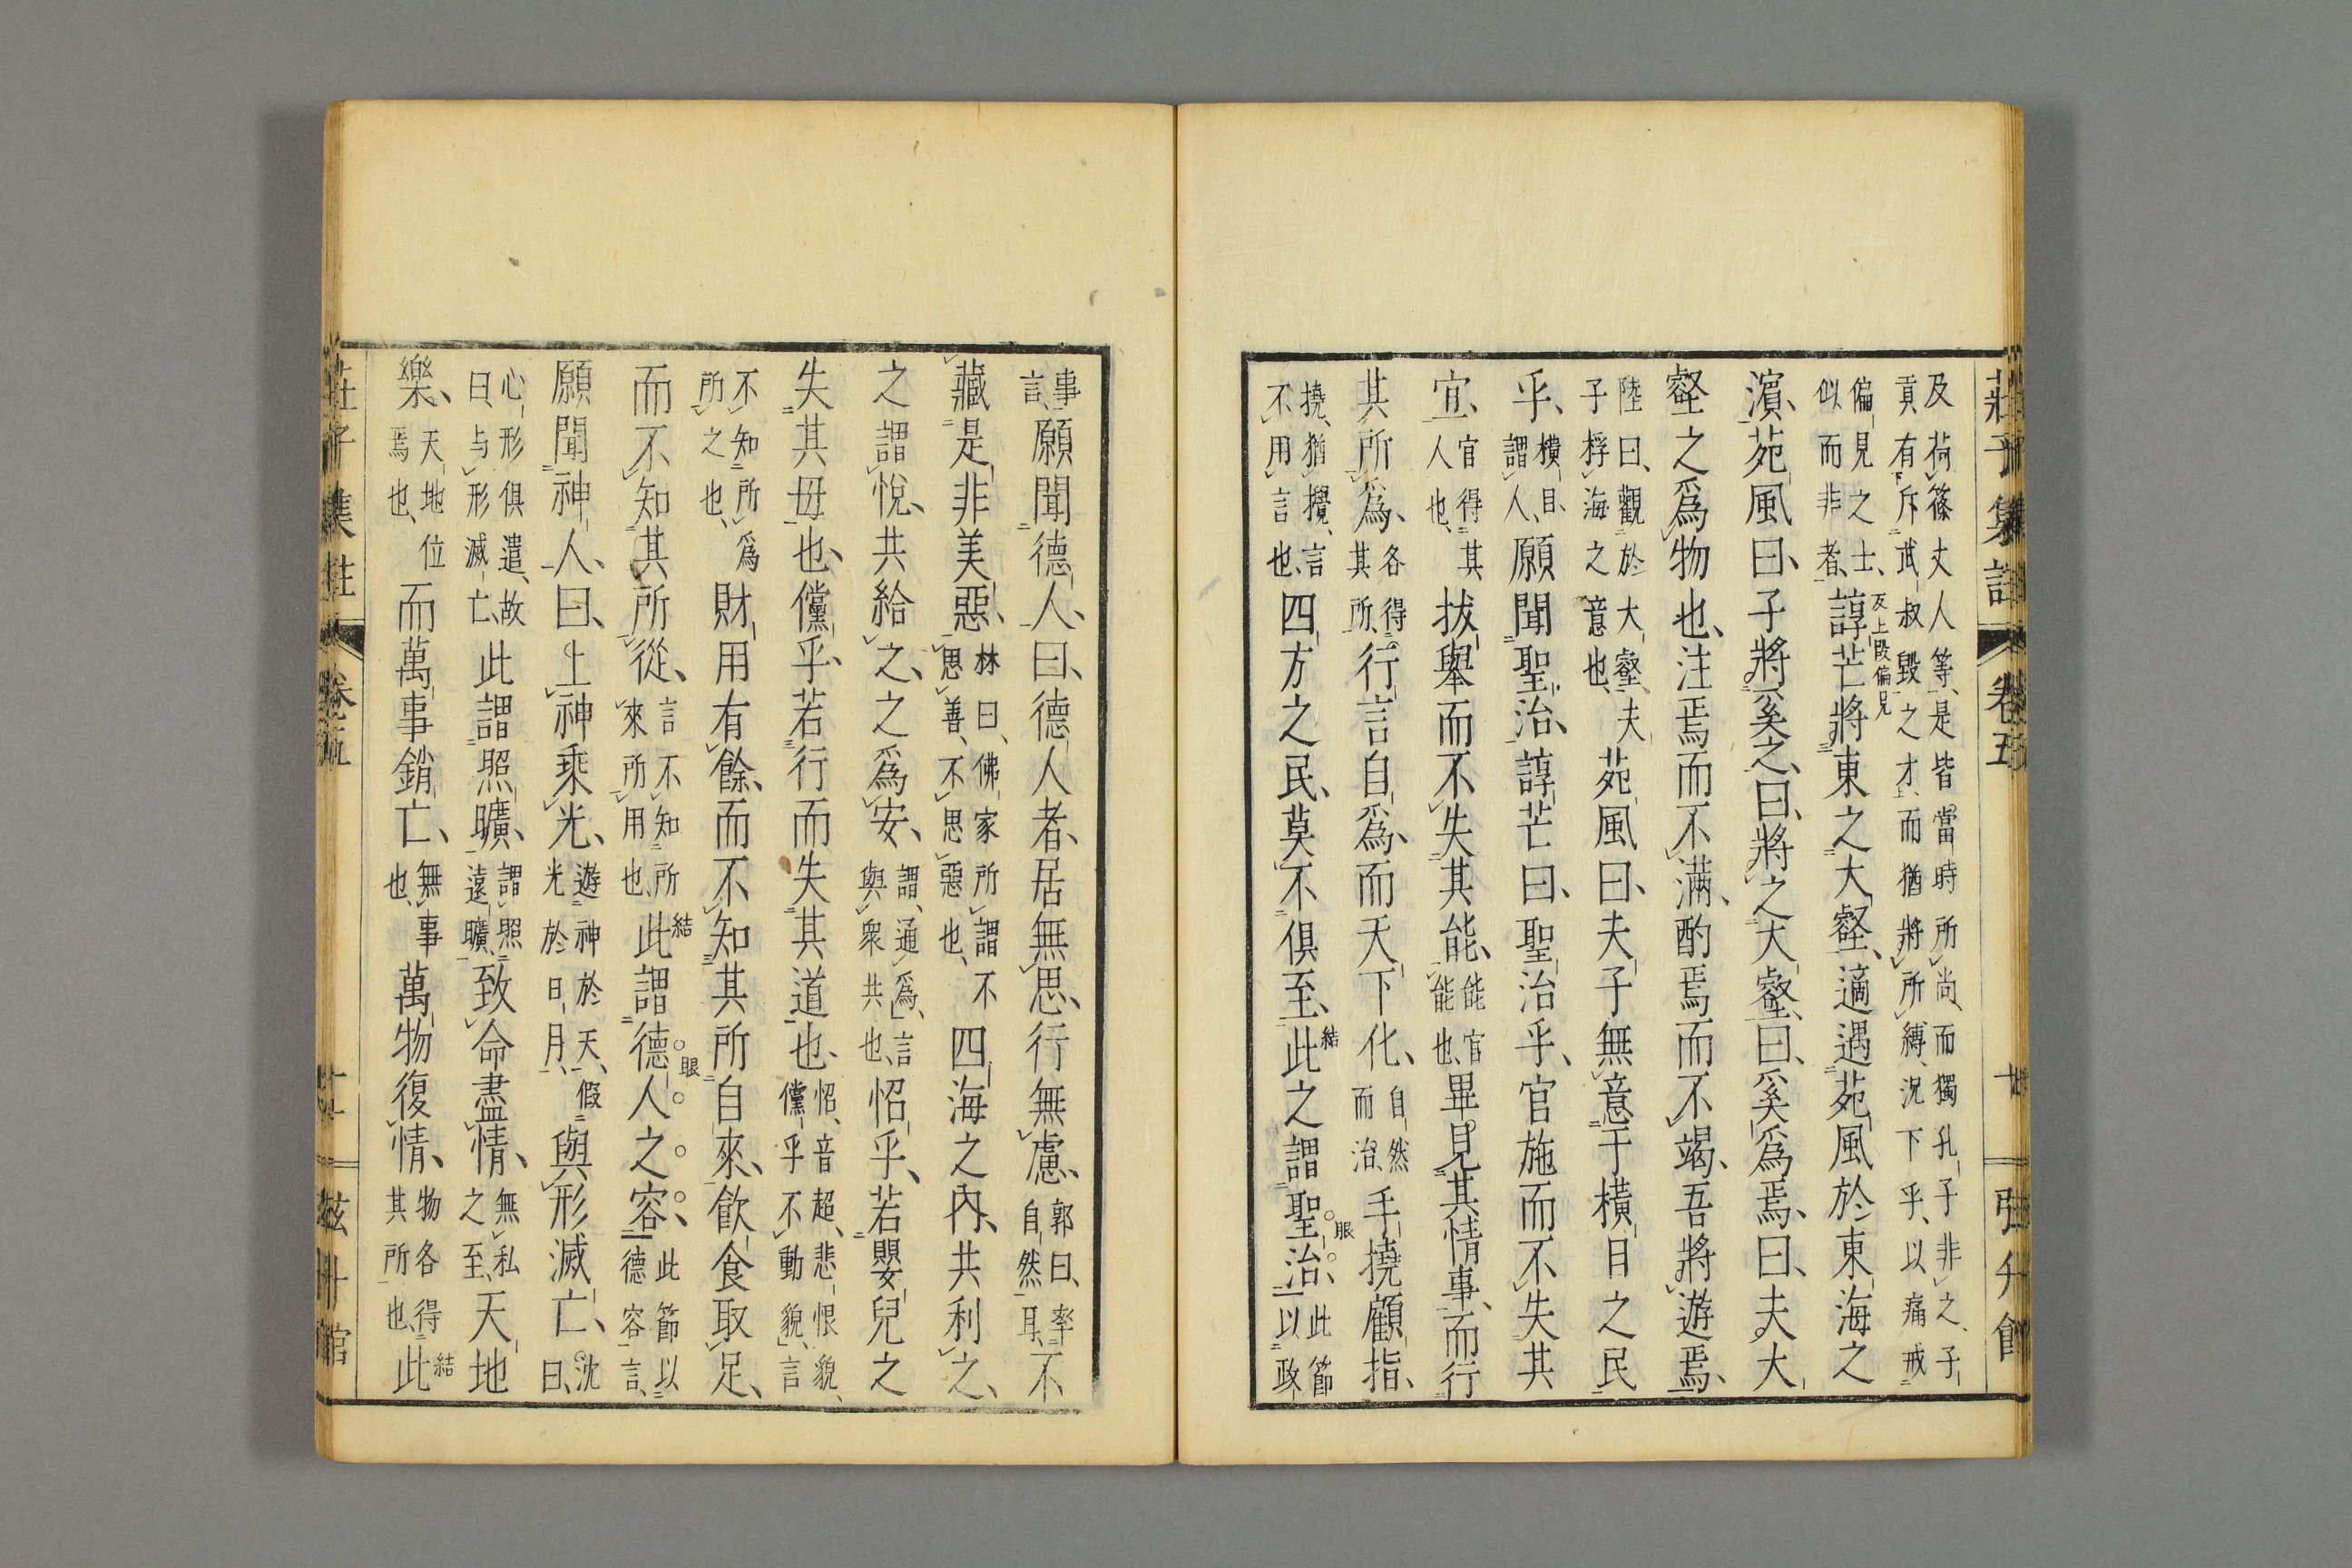 莊子集註 卷五 十 弦升館
及荷篠丈人等、是皆當時所尚、而獨孔子非之、子
貢有斥武叔毀之才、而猶將所縛、況下乎、以痛戒
偏見之士、
似而非者、
反上段偏見
諄芒將東之大壑、適遇苑風於東海之
濵、苑風曰、子將奚之、曰、將之大壑、曰、奚爲焉、曰、夫大
壑之爲物也、注焉而不滿、酌焉而不竭、吾將遊焉、
陸曰、觀於大壑、夫
子桴海之意也、
苑風曰、夫子無意于橫目之民
乎、
橫目、
謂人、
願聞聖治、諄芒曰、聖治乎、官施而不失其
宜、
官得其
人也、
拔舉而不失其能、
能官
能也、
畢見其情事、而行
其所爲、
各得
其所、
行言自爲、而天下化、
自然
而治、
手撓顧指、
撓、猶攪、言
不用言也、
四方之民、莫不俱至、
結
此之謂聖治、
眼
此節
以政
事
言、
願聞德人、曰、德人者、居無思、行無慮、
郭曰、率
自然耳、
不
藏是非美惡、
林曰、佛家所謂不
思善、不思惡也、
四海之內、共利之、
之謂悅、共給之、之爲安、
謂、通爲、言
與衆共也、
怊乎、若嬰兒之
失其母也、儻乎、若行而失其道也、
怊、音超、悲恨貌、
儻乎不動貌、言
不知所爲
所之也、
財用有餘、而不知其所自來、飲食取足、
而不知其所從、
言不知所
來所用也、
結
此謂德人之容、
眼
此節以
德容言、
願聞神人、曰、上神乘光、
遊神於天、假
光於日月、
與形滅亡、
沈
曰、
心形俱遣、故
曰、与形滅亡、
此謂照曠、
謂照
遠曠、
致命盡情、
無私
之至、
天地
樂、
天地位
焉也、
而萬事銷亡、
無事
也、
萬物復情、
物各得
其所也、
結
此
莊子集註 卷五 十一 弦升館